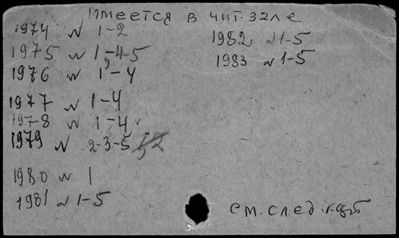 Имеется в чит. зале
1974 N 1-2
1975 N 1-4-5
1976 N 1-4
1977 N 1-4
1978 N 1-4
1979 N 2-3-5
1980 N 1
1981 N 1-5
1982 N 1-5
1983 N 1-5
См. след.